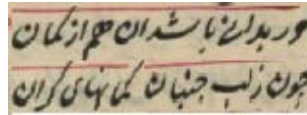 ور بداند باشد ان هم از کمان
چون ز لب جنبان کمانهای کران